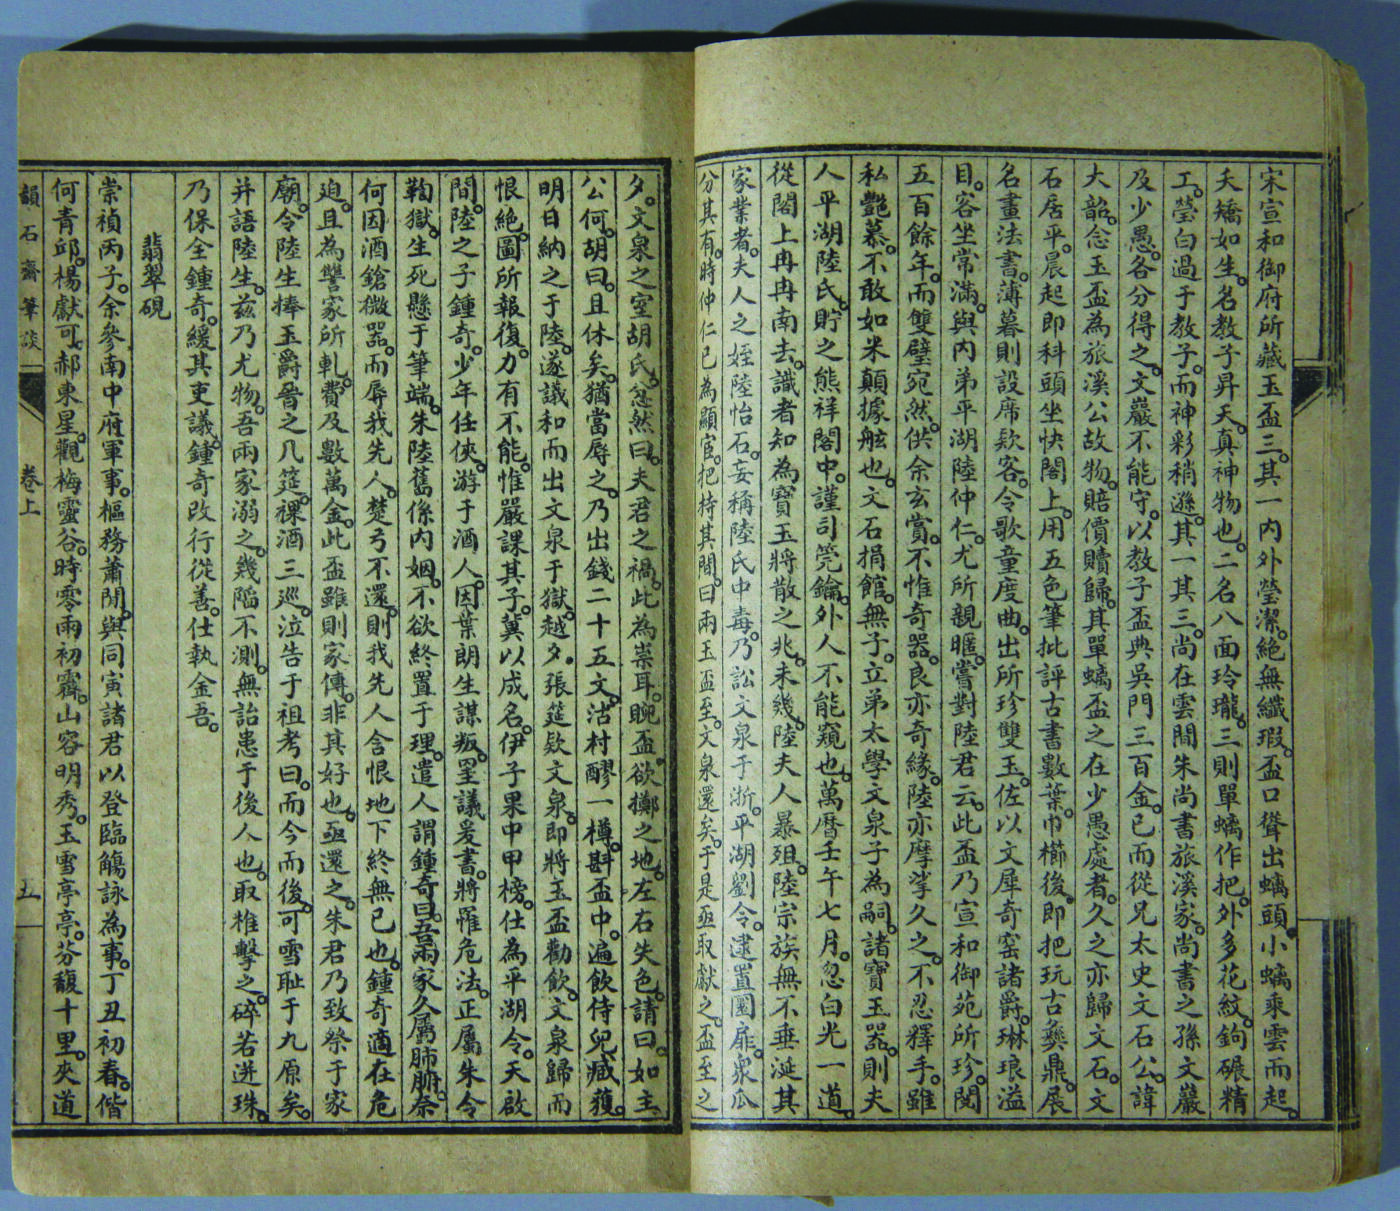 宋宣和御府所藏玉盃三。其一內外瑩潔。絕無纖瑕。盃口聳出螭頭。小螭乘雲而起。
夭矯如生。名教子昇天。真神物也。二名八面玲瓏。三則單螭作把。外多花紋。鉤碾精
工。瑩白過于教子。而神彩稍遜。其一其三。尚在雲間朱尚書旅溪家。尚書之孫文巖
及少愚。各分得之。文巖不能守。以教子盃典吳門三百金。已而從兄太史文石公。諱
大韶。念玉盃為旅溪公故物。賠價贖歸。其單螭盃之在少愚處者。久之亦歸文石。文
石居平。晨起即科頭坐快閣上。用五色筆批評古書數葉。巾櫛後。即把玩古彝鼎。展
名畫法書。薄暮則設席欵客。令歌童度曲。出所珍雙玉。佐以文犀奇窑諸爵。琳琅溢
目。客坐常滿。與內弟平湖陸仲仁。尤所親暱。嘗對陸君云。此盃乃宣和御苑所珍。閱
五百餘年。而雙璧宛然。供余玄賞。不惟奇器。良亦奇緣。陸亦摩挲久之。不忍釋手。雖
私艷慕。不敢如米顛據舷也。文石捐館。無子。立弟太學文泉子為嗣。諸寶玉器。則夫
人平湖陸氏。貯之熊祥閣中。謹司筦鑰。外人不能窺也。萬曆壬午七月。忽白光一道。
從閣上冉冉南去。識者知為寶玉將散之兆。未幾。陸夫人暴殂。陸宗族無不垂涎其
家業者。夫人之姪陸怡石。妄稱陸氏中毒。乃訟文泉于浙。平湖劉令。逮置圜扉。衆瓜
分其有。時仲仁已為顯宦。把持其間。曰兩玉盃至。文泉還矣。于是亟取獻之。盃至之
夕。文泉之室胡氏。忿然曰。夫君之禍。此為祟耳。睨盃。欲擲之地。左右失色。請曰。如主
公何。胡曰。且休矣。猶當辱之。乃出錢二十五文。沽村醪一樽。斟盃中。遍飲侍兒臧獲。
明日納之于陸。遂議和而出文泉于獄。越夕。張筵欵文泉。即將玉盃勸飲。文泉歸而
恨絕。圖所報復。力有不能。惟嚴課其子。冀以成名。伊子果中甲榜。仕為平湖令。天啟
間。陸之子鍾奇。少年任俠。游于酒人。因葉朗生謀叛。罣議爰書。將罹危法。正屬朱令
鞫獄。生死懸于筆端。朱陸舊係內姻。不欲終置于理。遣人謂鍾奇曰。吾兩家久屬肺腑。奈
何因酒鎗微器。而辱我先人。楚弓不還。則我先人含恨地下終無已也。鍾奇適在危
迫。且為讐家所軋。費及數萬金。此盃雖則家傳。非其好也。亟還之。朱君乃致祭于家
廟。令陸生捧玉爵。晉之几筵。祼酒三巡。泣告于祖考曰。而今而後。可雪耻于九原矣。
并語陸生。茲乃尤物。吾兩家溺之。幾陷不測。無詒患于後人也。取椎擊之。碎若迸珠。
乃保全鍾奇。緩其吏議。鍾奇改行從善。仕執金吾。
翡翠硯
崇禎丙子。余參南中府軍事。樞務蕭閒。與同寅諸君以登臨觴詠為事。丁丑初春。偕
何青邱。楊獻可。郝東星。觀梅靈谷。時零雨初霽。山容明秀。玉雪亭亭。芬馥十里。夾道
韻石齋筆談 卷上 五